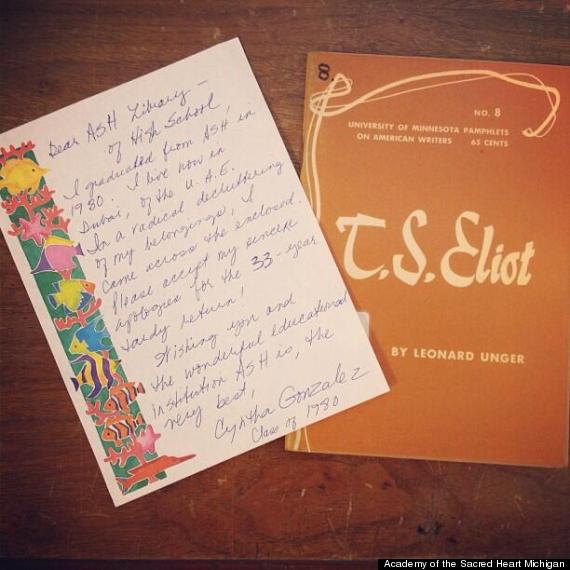 Dear ASH Library –
of High School,
I graduated from ASH in
1980. I live now in
Dubai, of the U.A.E.
In a radical decluttering
of my belongings, I
came across the enclosed.
Please accept my sincere
apologies for the 33-year
tardy return!
Wishing you and
the wonderful educational
institution ASH is, the
very best,
Cynthia Gonzalez
Class of 1980
8
NO. 8
UNIVERSITY OF MINNESOTA PAMPHLETS
ON AMERICAN WRITERS 65 CENTS
T.S. Eliot
BY LEONARD UNGER
Academy of the Sacred Heart Michigan